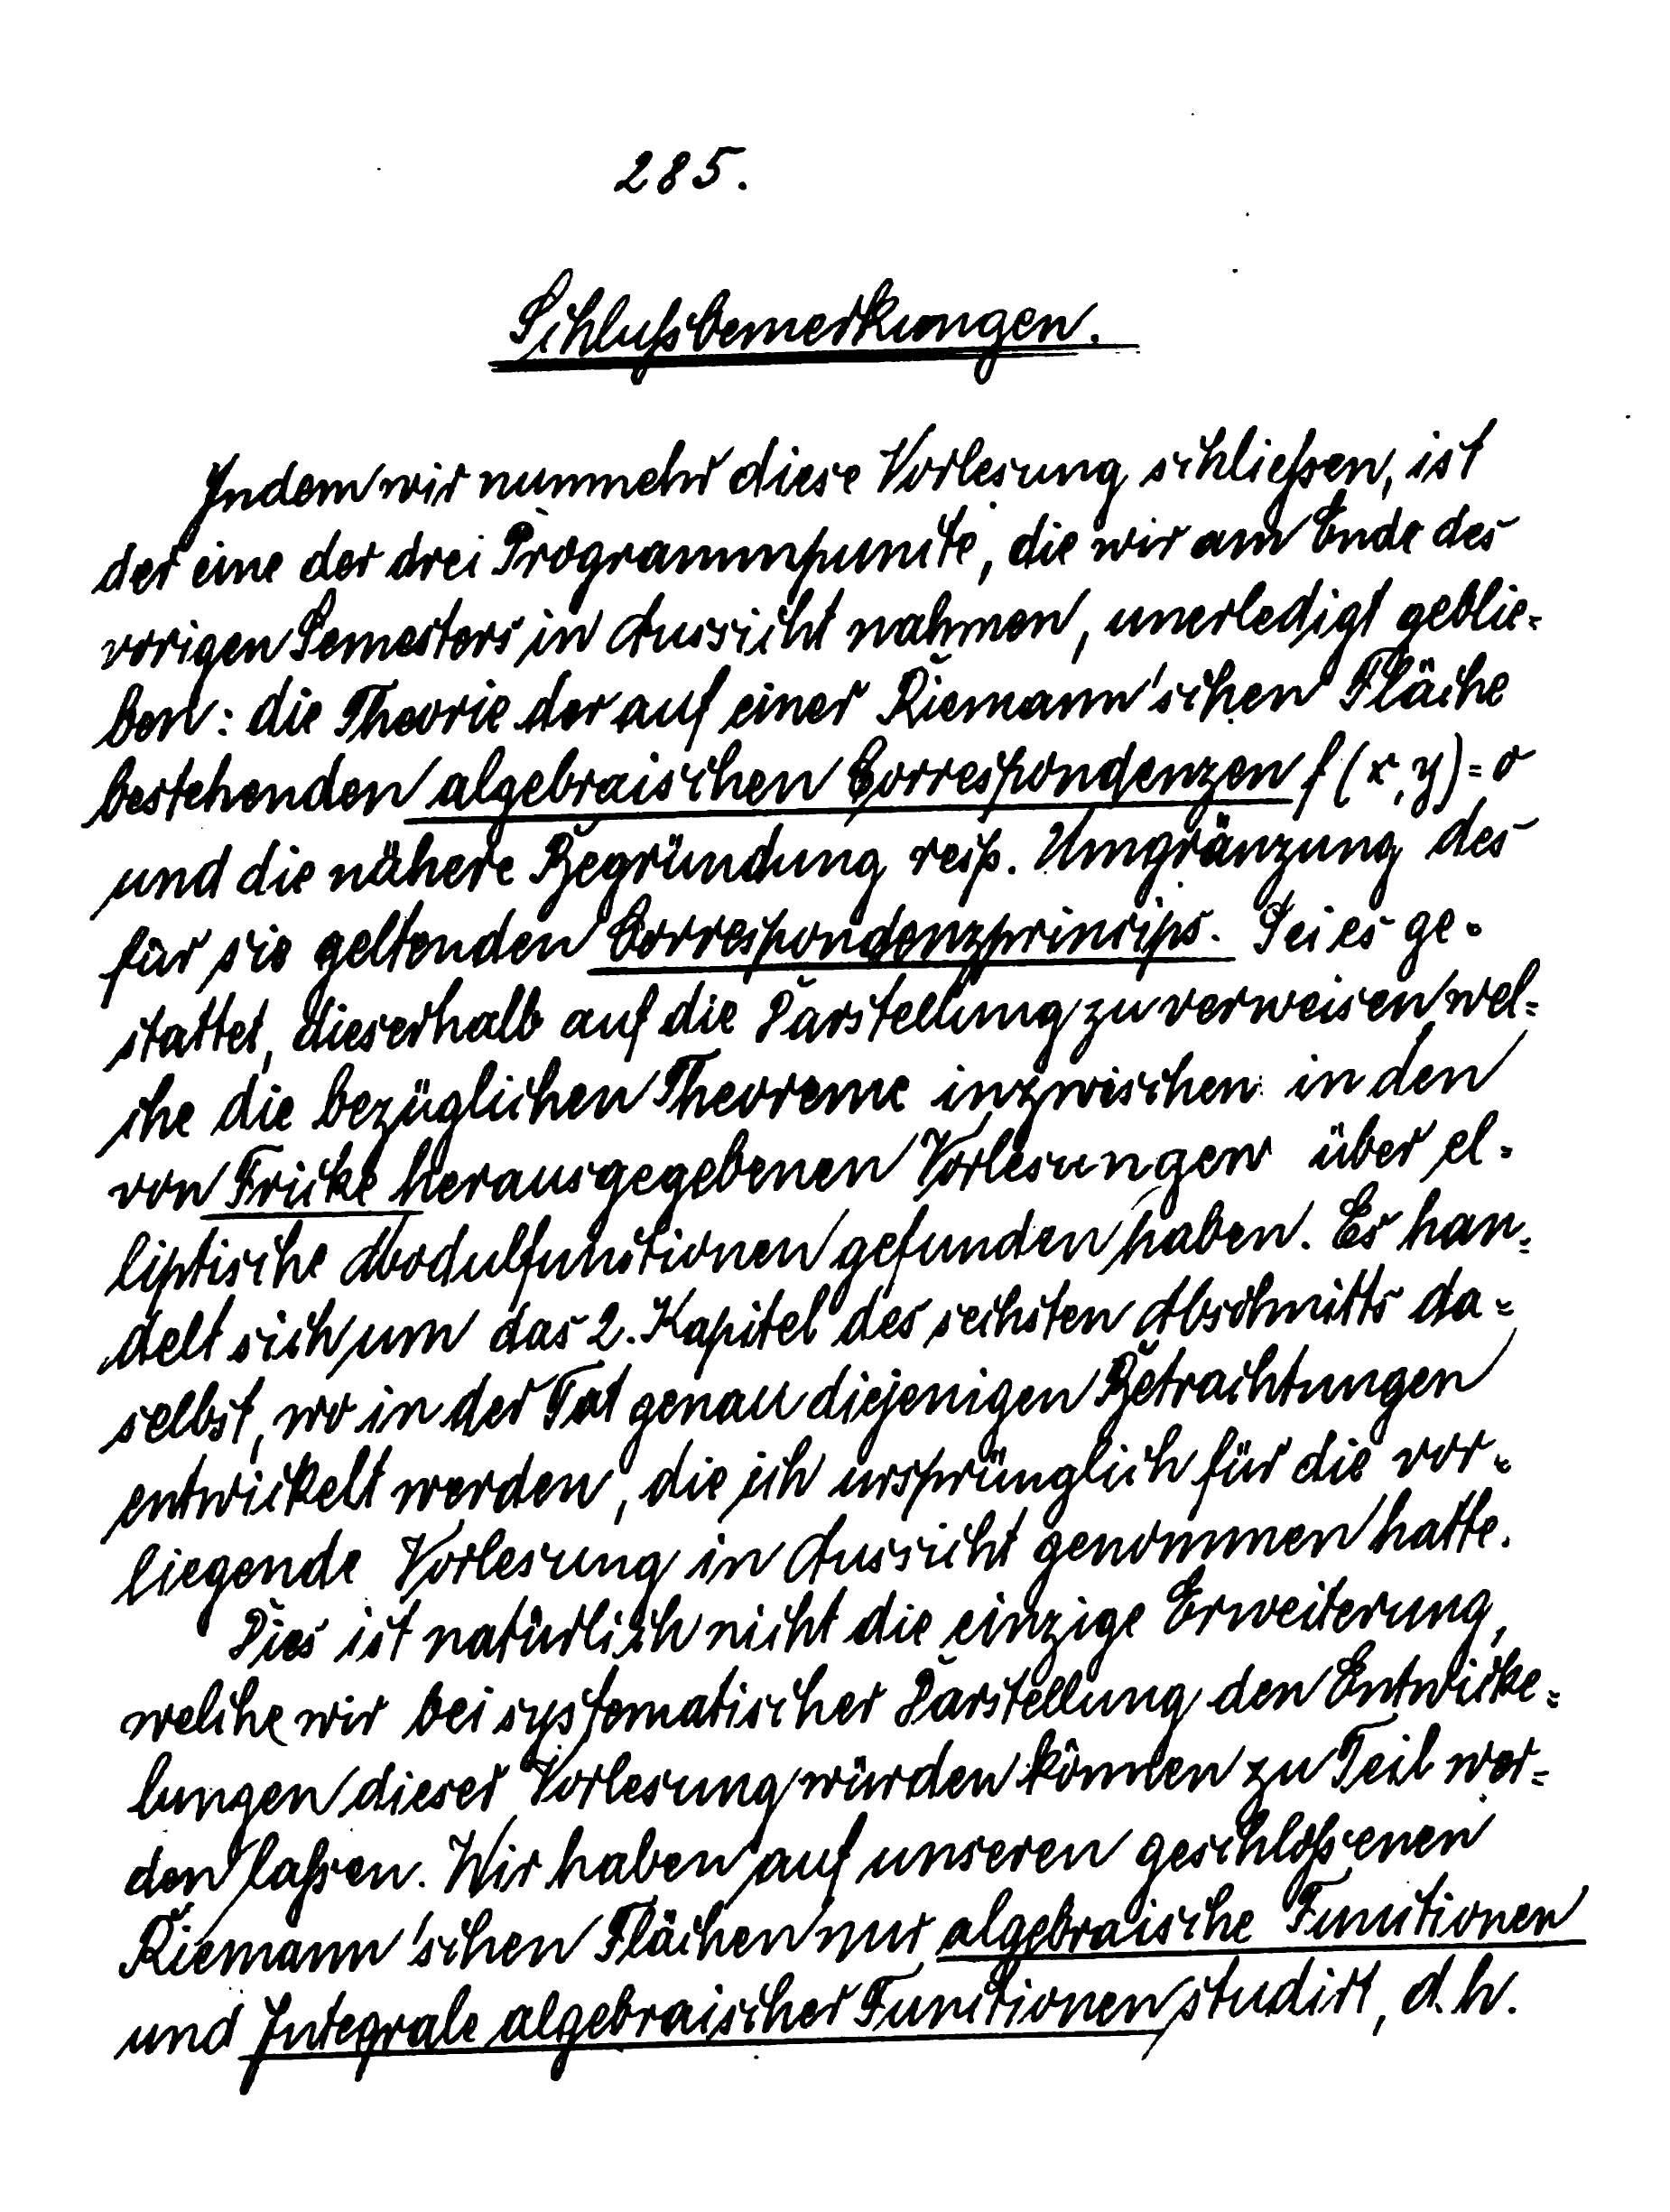 285.
Schlußbemerkungen.
Indem wir nunmehr diese Vorlesung schließen, ist
der eine der drei Programmpuncte, die wir am Ende des
vorigen Semesters in Aussicht nahmen, unerledigt geblie-
ben: die Theorie der auf einer Riemann'schen Fläche
bestehenden algebraischen Correspondenzen f(x,y)=0
und die nähere Begründung resp. Umgränzung des
für sie geltenden Correspondenzprincips. Sei es ge-
stattet, dieserhalb auf die Darstellung zu verweisen wel-
che die bezüglichen Theoreme inzwischen in den
von Fricke herausgegebenen Vorlesungen über el-
liptische Modulfunctionen gefunden haben. Es han-
delt sich um das 2. Kapitel des sechsten Abschnitts da-
selbst, wo in der Tat genau diejenigen Betrachtungen
entwickelt werden, die ich ursprünglich für die vor-
liegende Vorlesung in Aussicht genommen hatte.
Dies ist natürlich nicht die einzige Erweiterung,
welche wir bei systematischer Darstellung den Entwicke-
lungen dieser Vorlesung würden können zu Teil wer-
den laßen. Wir haben auf unseren geschloßenen
Riemann'schen Flächen nur algebraische Functionen
und Integrale algebraischer Functionen studirt, d.h.